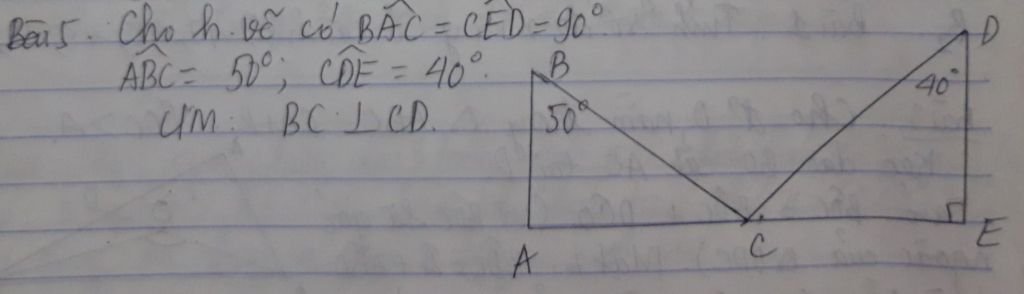 Bài 5. Cho h.vẽ có BÂC = CÊD = 90°.
ABC = 50°; CDE = 40°.
CM: BC ⊥ CD.
B
50°
A
C
D
40°
E